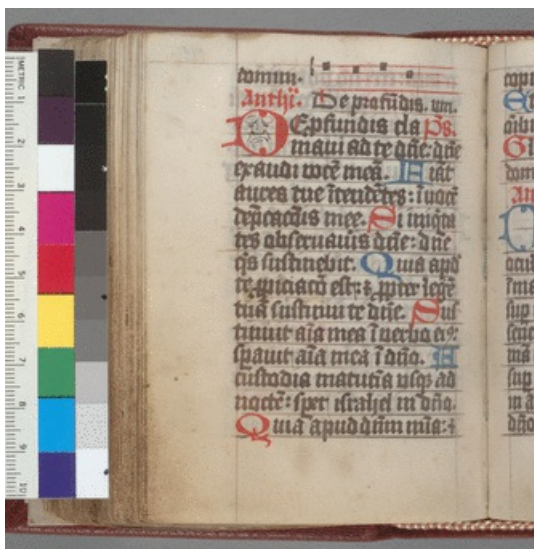 METRIC 1 2 3 4 5 6 7 8 9 10
domin.
Anthi. De profūdis. vm.
DEpfundis cla Ps.
maui ad te dñe: dñe
exaudi vocē meā. Fiāt
aures tue ītendētes: ī vocē
dep̄cacōis mee. Si iniq̄ta
tes obseruaūis dñe: dñe
q̄s sustinebit. Quia apd̄
te p̄piciacō est: & ꝓpter legē
tuā sustinui te dñe. Sus
tinuit aīa mea ī verbo eiꝰ:
spauit aīa mea ī dño. A
custodia matutīa vsqꝫ ad
noctē: sper israhel in dño.
Quia apud dūm mīa: &